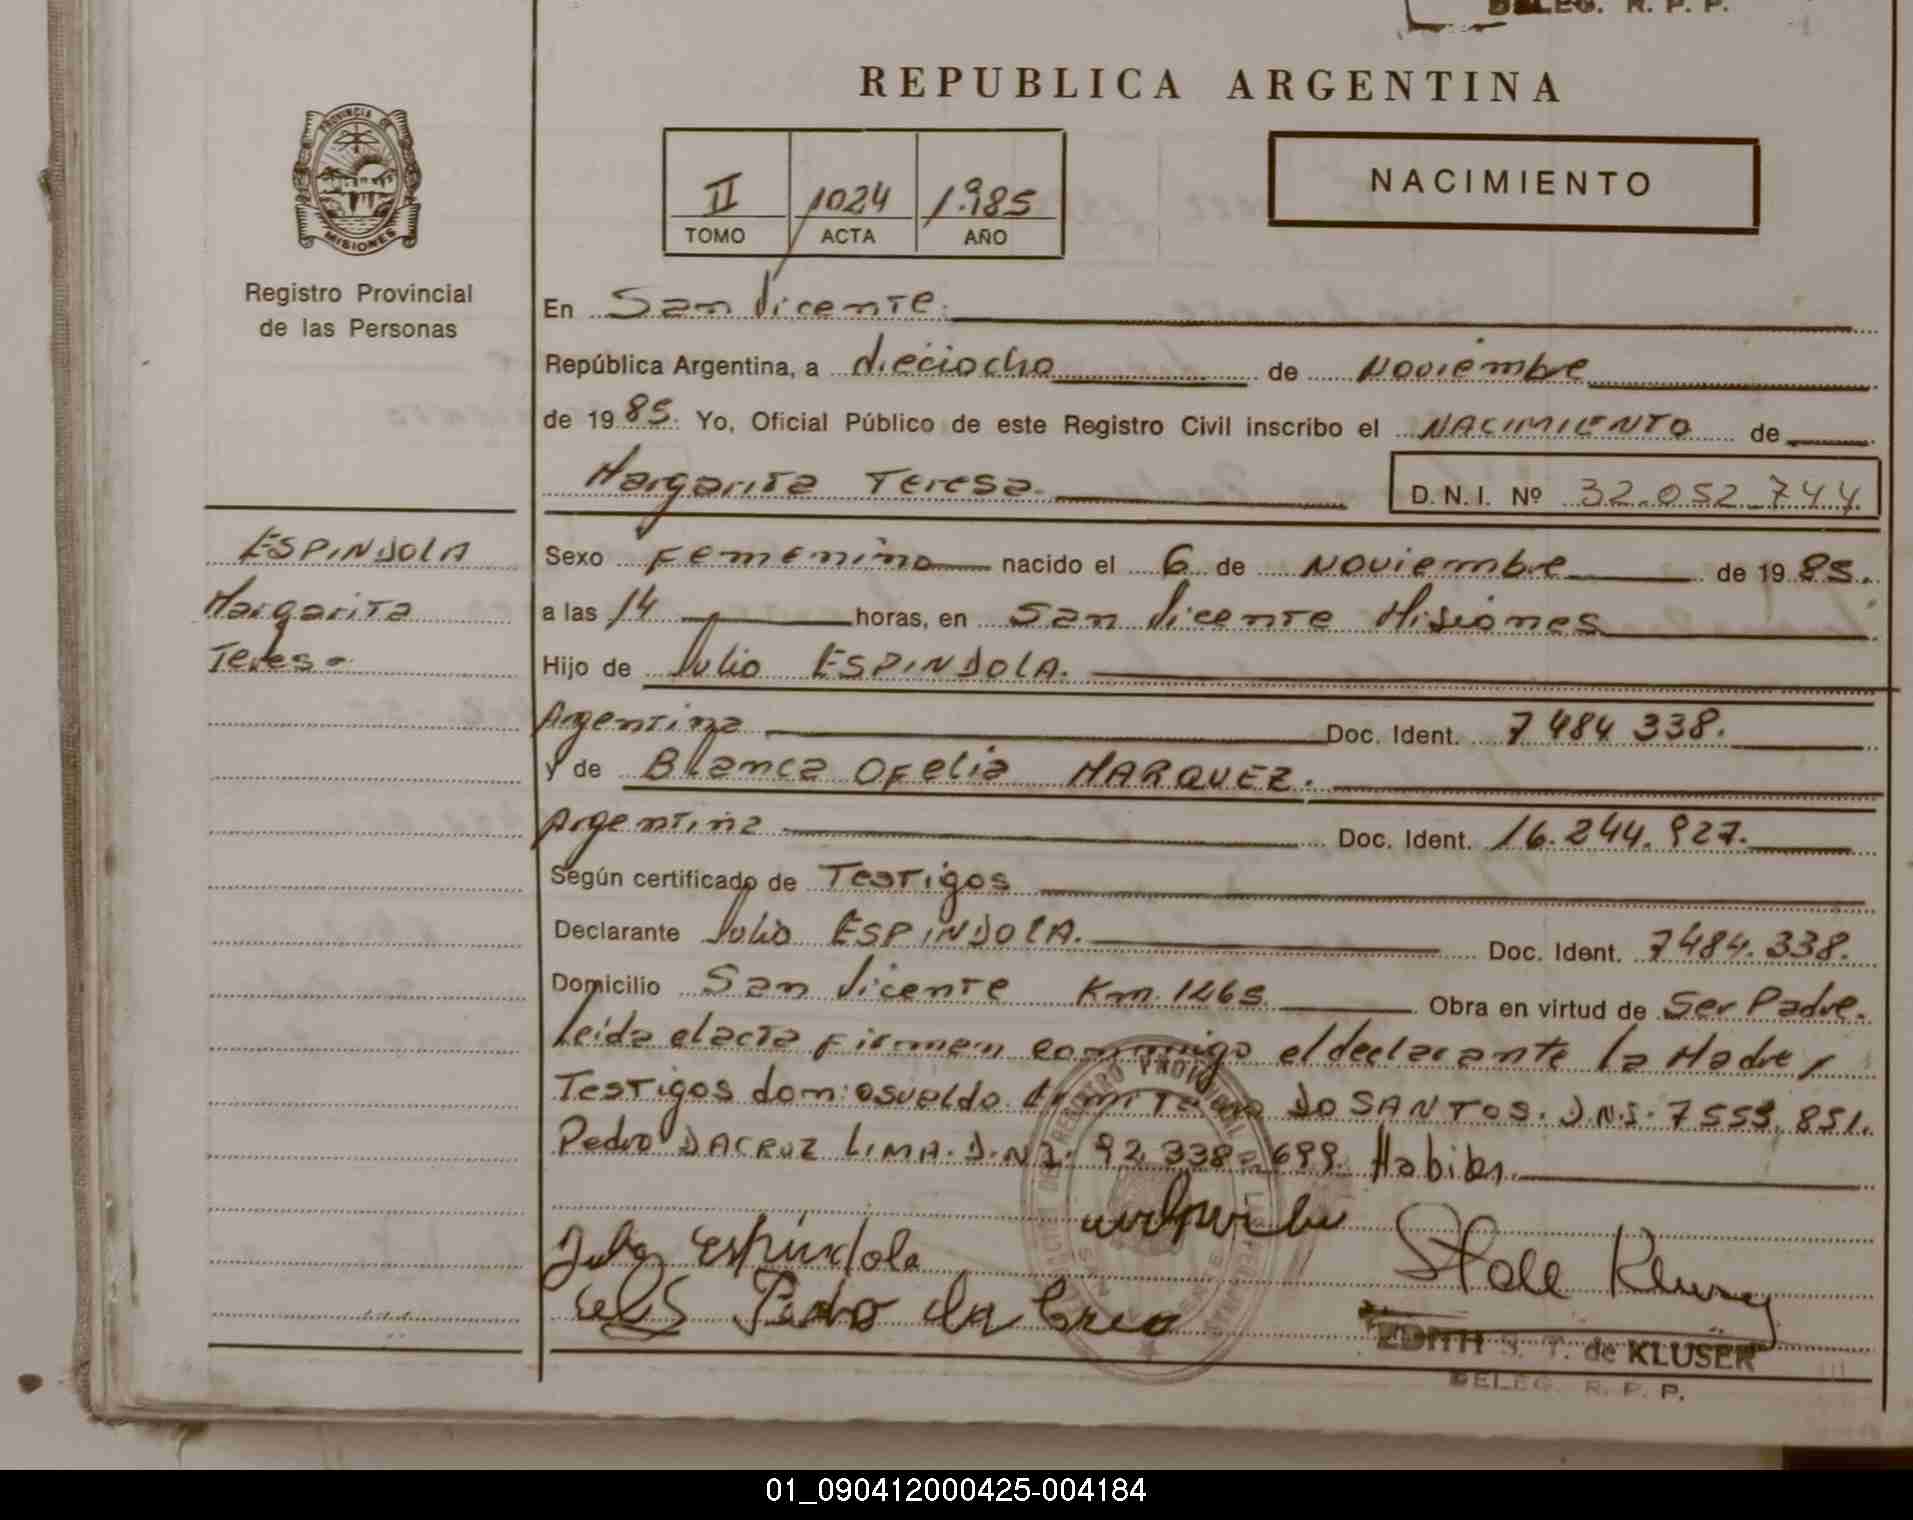 DELEG. R. P. P.
REPUBLICA ARGENTINA
PROVINCIA DE
MISIONES
Registro Provincial
de las Personas
II 1024 1.985
TOMO ACTA AÑO
NACIMIENTO
En San Vicente.
República Argentina, a dieciocho de Noviembre
de 19 85. Yo, Oficial Público de este Registro Civil inscribo el NACIMIENTO de
Margarita Teresa. D.N.I. Nº 32.052.744.
ESPINDOLA
Margarita
Teresa
Sexo Femenino nacido el 6 de Noviembre de 19 85.
a las 14 horas, en San Vicente Misiones
Hijo de Julio ESPINDOLA.
Argentina Doc. Ident. 7484 338.
y de Blanca Ofelia MARQUEZ.
Argentina Doc. Ident. 16.244.927.
Según certificado de Testigos
Declarante Julio ESPINDOLA. Doc. Ident. 7484.338.
Domicilio San Vicente Km. 1265 Obra en virtud de Ser Padre.
leida el acta firman conmigo el declarante la Madre y
Testigos don: osvaldo DO SANTOS. D.N.I. 7553.851.
Pedro DACRUZ LIMA. D.N.I. 92.338.699. Habiles.
Julio Espíndola
Pedro da Cruz
EDITH S. T. de KLUSER
DELEG. R. P. P.
01_090412000425-004184